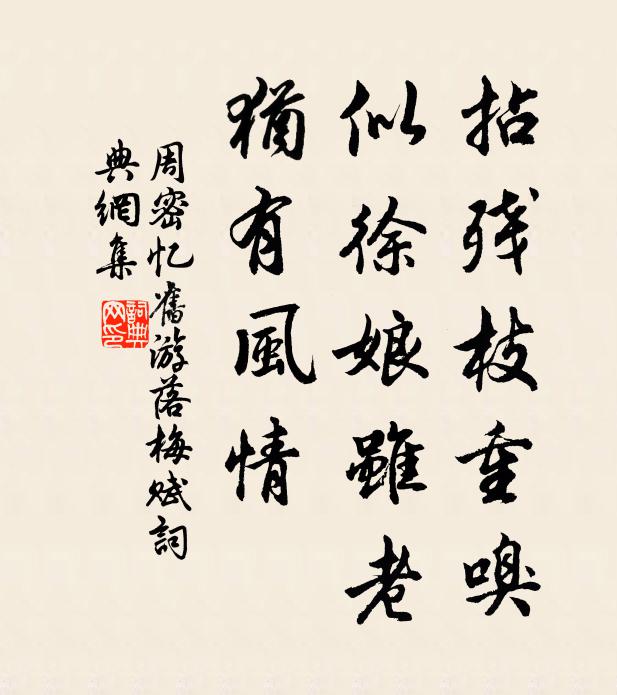 拈残枝重嗅
似徐娘雖老
猶有風情
周密忆舊游落梅赋詞
典網集
詞典
网印